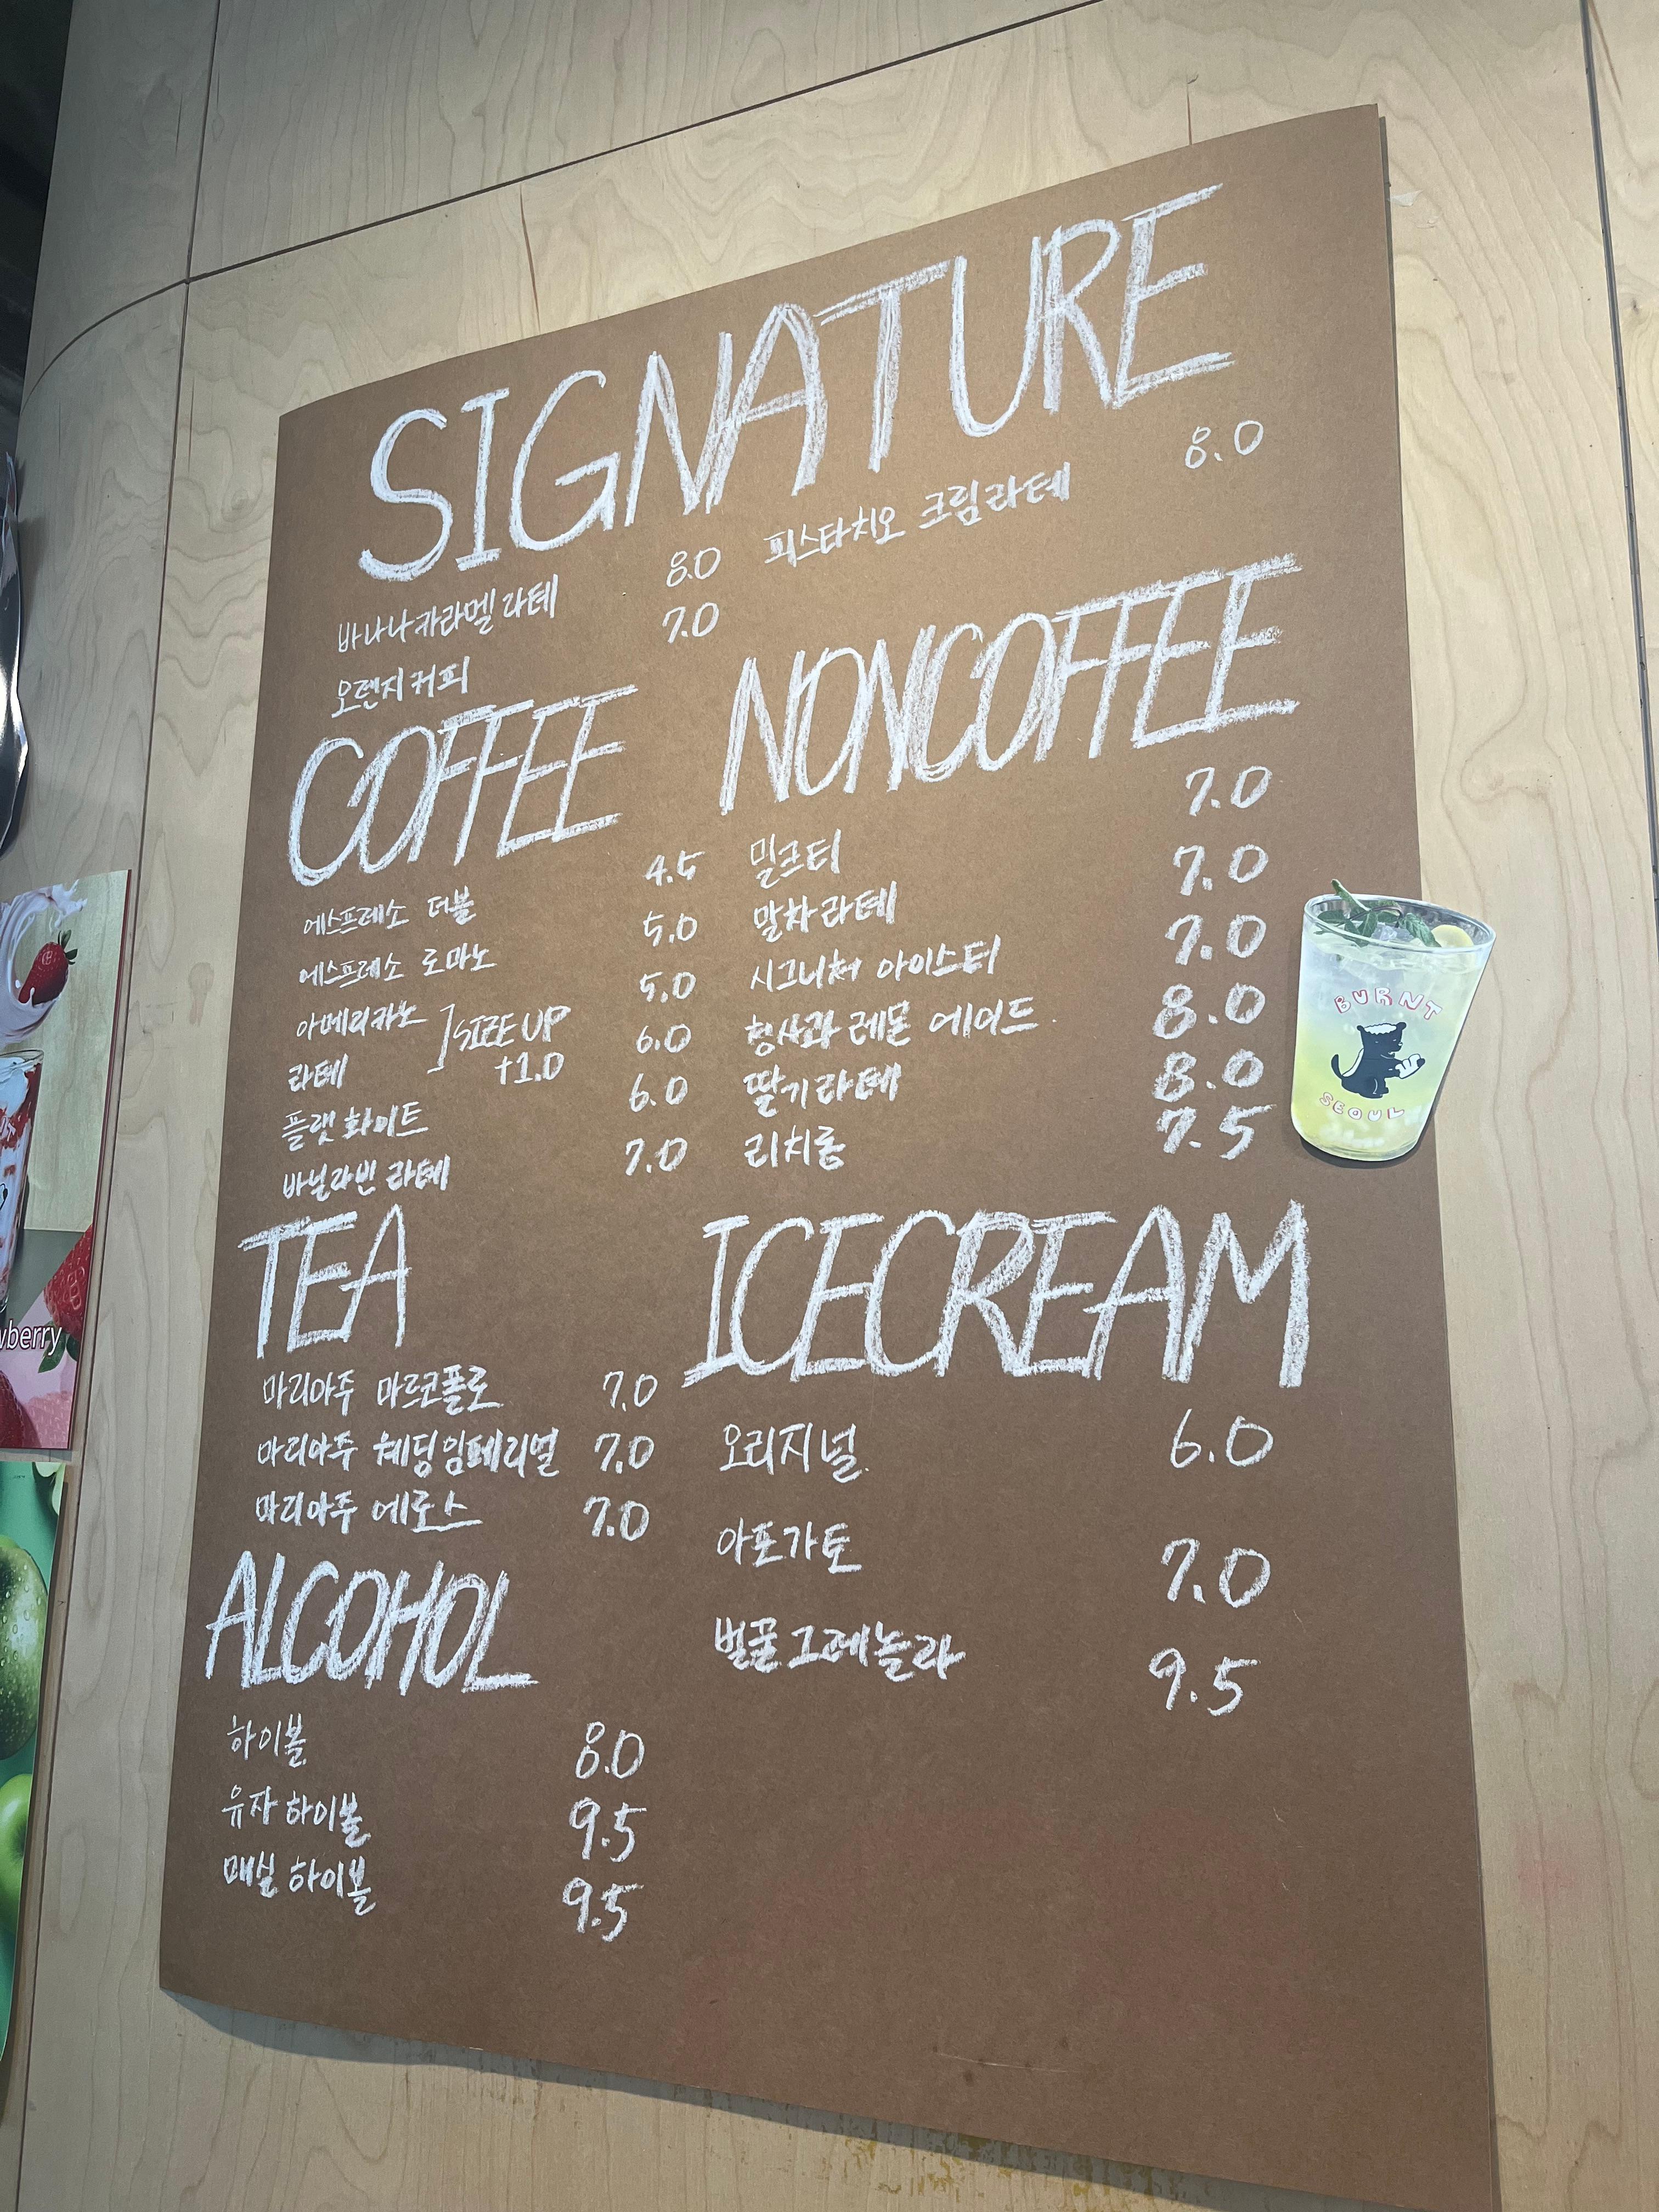 SIGNATURE
바나나카라멜라떼 8.0
오렌지커피 7.0
피스타치오 크림라떼 8.0
COFFEE
에스프레소 더블 4.5
에스프레소 로마노 5.0
아메리카노 5.0
라떼 6.0
SIZE UP
+1.0
플랫화이트 6.0
바닐라빈 라떼 7.0
NONCOFFEE
밀크티 7.0
말차라떼 7.0
시그니처 아이스티 7.0
청사과 레몬 에이드 8.0
딸기라떼 8.0
리치롱 7.5
TEA
마리아주 마르코폴로 7.0
마리아주 웨딩임페리얼 7.0
마리아주 에로스 7.0
ICECREAM
오리지널 6.0
아포가토 7.0
벌꿀그래놀라 9.5
ALCOHOL
하이볼 8.0
유자하이볼 9.5
매실 하이볼 9.5
BURNT
SEOUL
wberry